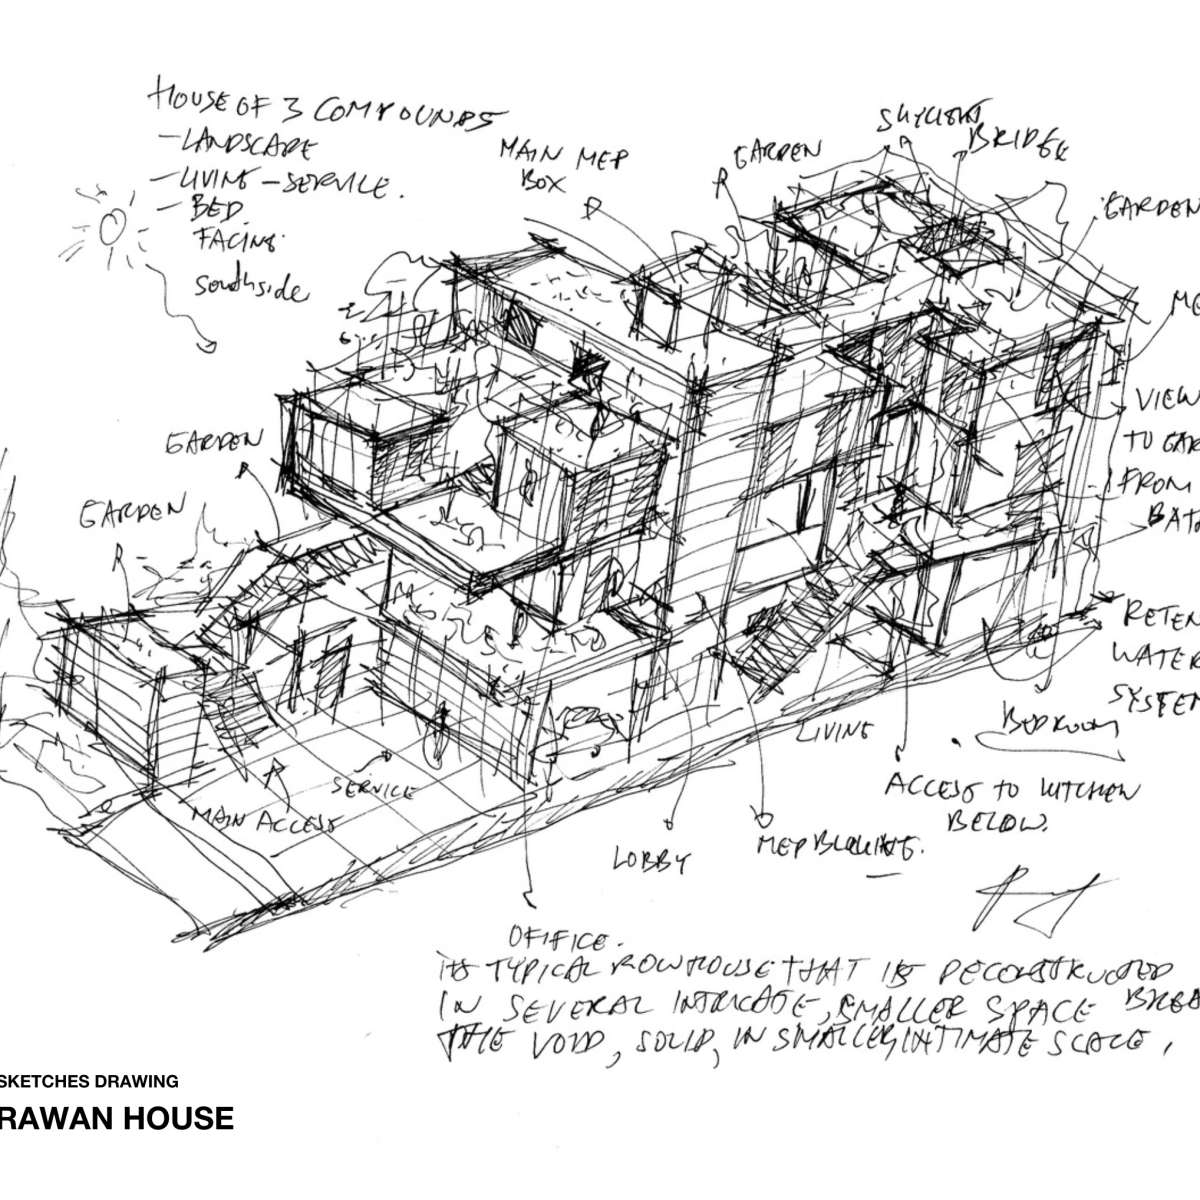 HOUSE OF 3 COMPOUNDS
- LANDSCAPE
- LIVING - SERVICE.
- BED
FACING
southside
MAIN MEP
BOX
GARDEN
SKYLIGHT
BRIDGE
GARDEN
ME
VIEW
TO GAR
FROM
BAT
GARDEN
GARDEN
RETEN
WATER
SYSTEM
BEDROOM
LIVING
ACCESS TO KITCHEN
BELOW.
SERVICE
MAIN ACCESS
LOBBY
MEP
OFIFICE.
ITS TYPICAL ROWHOUSE THAT IS DECONSTRUCTED
IN SEVERAL INTRICATE, SMALLER SPACE BREA
THE VOID, SOLID, IN SMALLER, INTIMATE SCALE,
SKETCHES DRAWING
RAWAN HOUSE